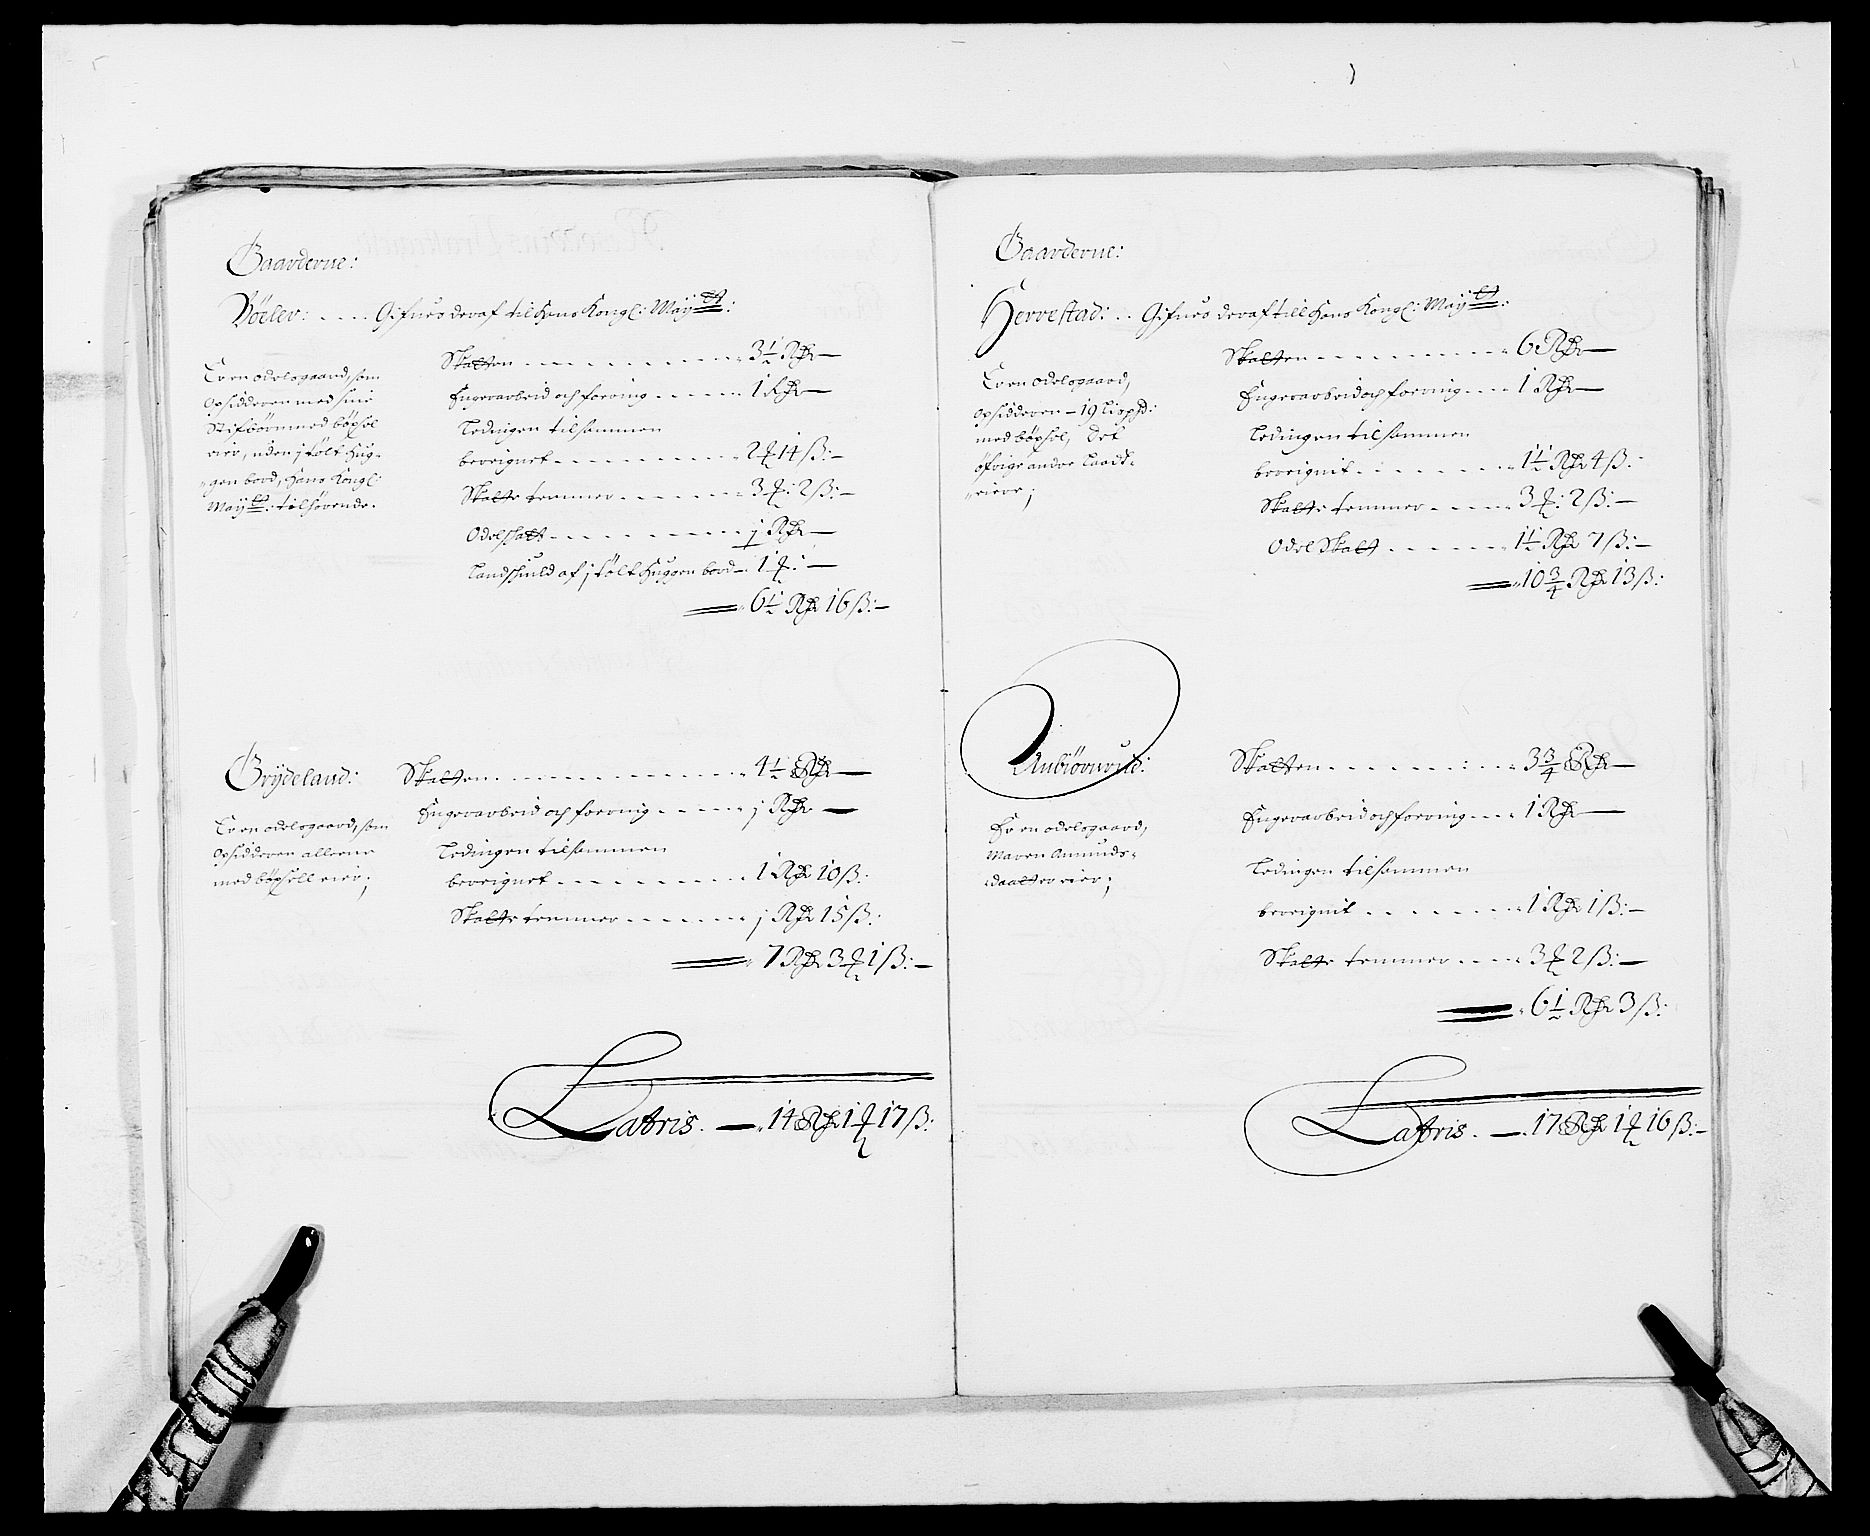 Gaarderne:
Bøeler: .... Gifues deraf til Hans Kongl: Maÿtt:
Er en odelsgaard, som
opsidderen med sine
Stifbørn med bøxsel
eier, uden j tolt Hug-
gen bord, Hans Kongl:
Maÿtt: tilhørende.
Skatten 3½ Rdr
Fugerarbeid och foering 1 Rdr
Ledingen tilsammen
bereignet 2 ß 14 ß:
Skatte temmer 3 : 2 ß:
Odelskatt j Rdr
Landschuld af j tolt Huggen bord 1
6½ Rdr 16 ß:
Grÿdeland:
Er en odelsgaard, som
opsidderen alleene
med bøxsell eier;
Skatten 4½ Rdr
Fugerarbeid och foering j Rdr
Ledingen tilsammen
bereignet 1 Rdr 10 ß:
Skatte temmer j Rdr 15 ß:
7 Rdr 3 1 ß:
Latris. 14 Rdr 1 17 ß:
Gaarderne:
Herrestad: .. Gifues deraf till Hans Kongl: Maÿtt:
Er en odelsgaard,
opsidderen 19 Lispd:
med bøxsel, det
øfrige andre Laadt-
eiere;
Skatten 6 Rdr
Fugerarbeid och foering 1 Rdr
Ledingen tilsammen
bereignit 1½ Rdr 4 ß:
Skatte temmer 3 : 2 ß:
Odel Skatt 1½ Rdr 7 ß:
10¾ Rdr 13 ß:
Unbiørnrud:
Er en odelsgaard,
Maren Amunds-
daatter eier;
Skatten 3¾ Rdr
Fugerarbeid och foering 1 Rdr
Ledingen tilsammen
bereignit 1 Rdr 1 ß:
Skatte temmer 3 2 ß:
6½ Rdr 3 ß:
Latris. 17 Rdr 1 16 ß: